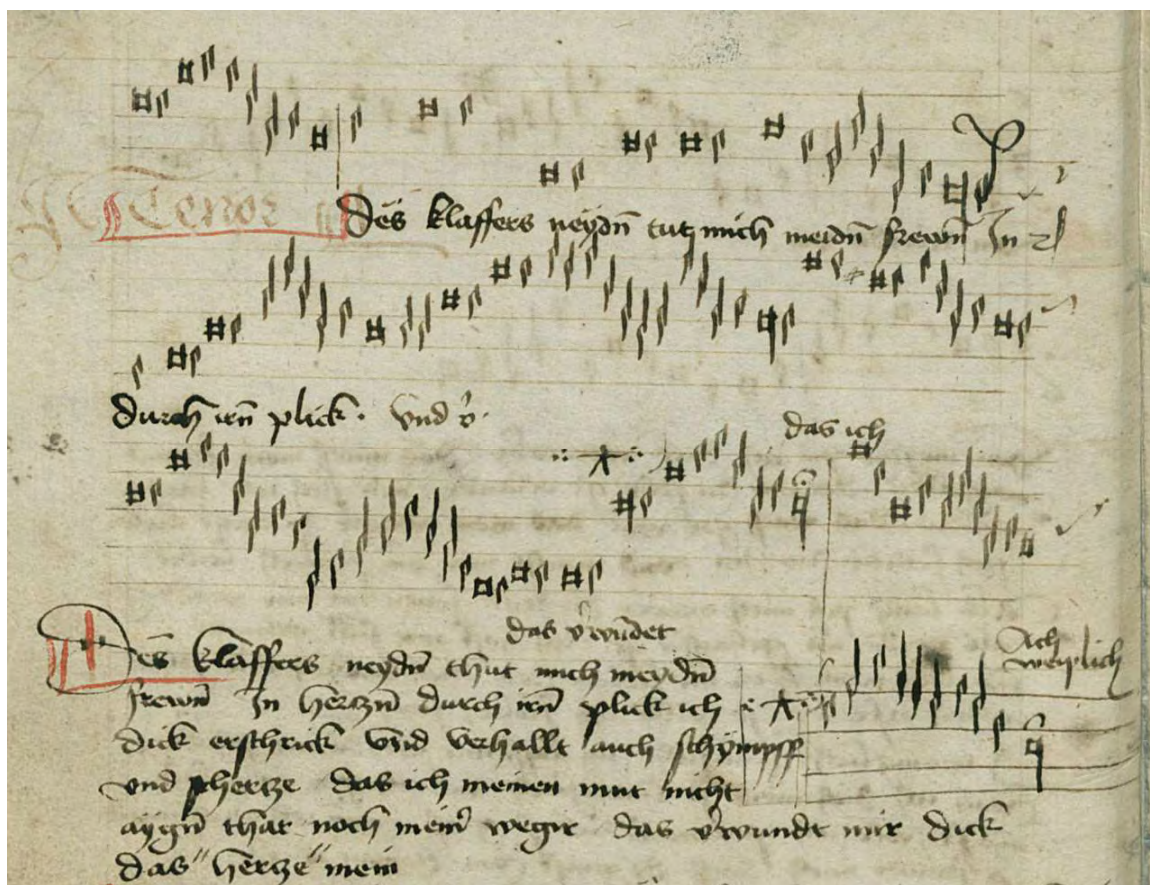 Tenor
Des klaffers neydn̄ tut mich meidn̄ frewn̄ In
durch irn̄ plick. vnd
das ich
das v̾wundet
Des klaffers neydn̄ thut mich meydn̄
Ach weiplich
frewn̄ In hertzn̄ durch irn̄ plick ich
dick erschrick vnd verhallt auch schympff
vnd schertze das ich meinen mut nicht
aygn̄ thar noch mein̾ wegir das v̾wundt mir dick
das hertze mein